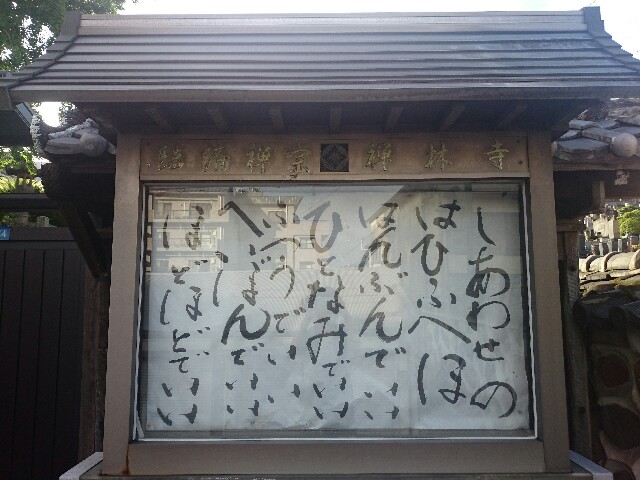 臨濟禪宗 禪林寺
しあわせの
はひふへほ
はんぶんでいい
ひとなみでいい
ふつうでいい
へいぼんでいい
ほどほどでいい